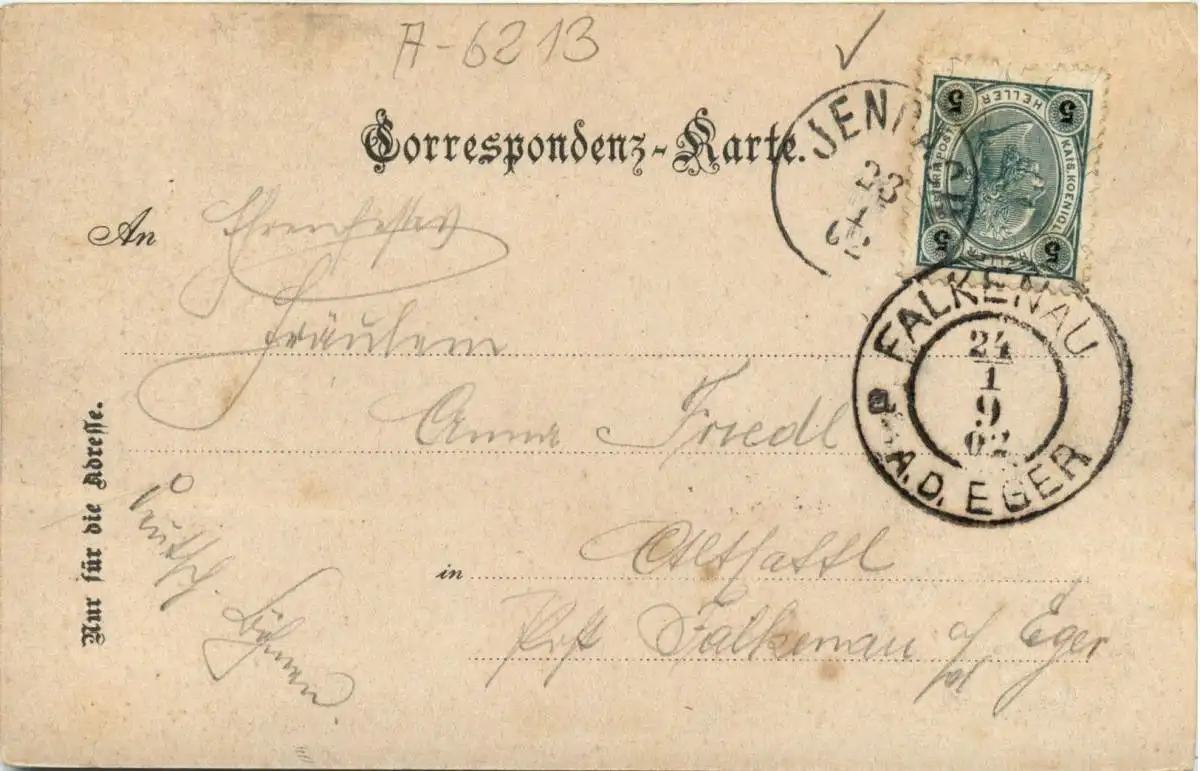 A-6213
Correspondenz-Karte.
An
Fräulein
Anna Friedl
in Altsattl
Post Falkenau a/d Eger
Nur für die Adresse.
Deutsch.
Böhmen.
JEN
23
1
02
5 5 5 5
HELLER
KAIS. KOENIGL
FALKENAU
24
1
9
02
A.D. EGER